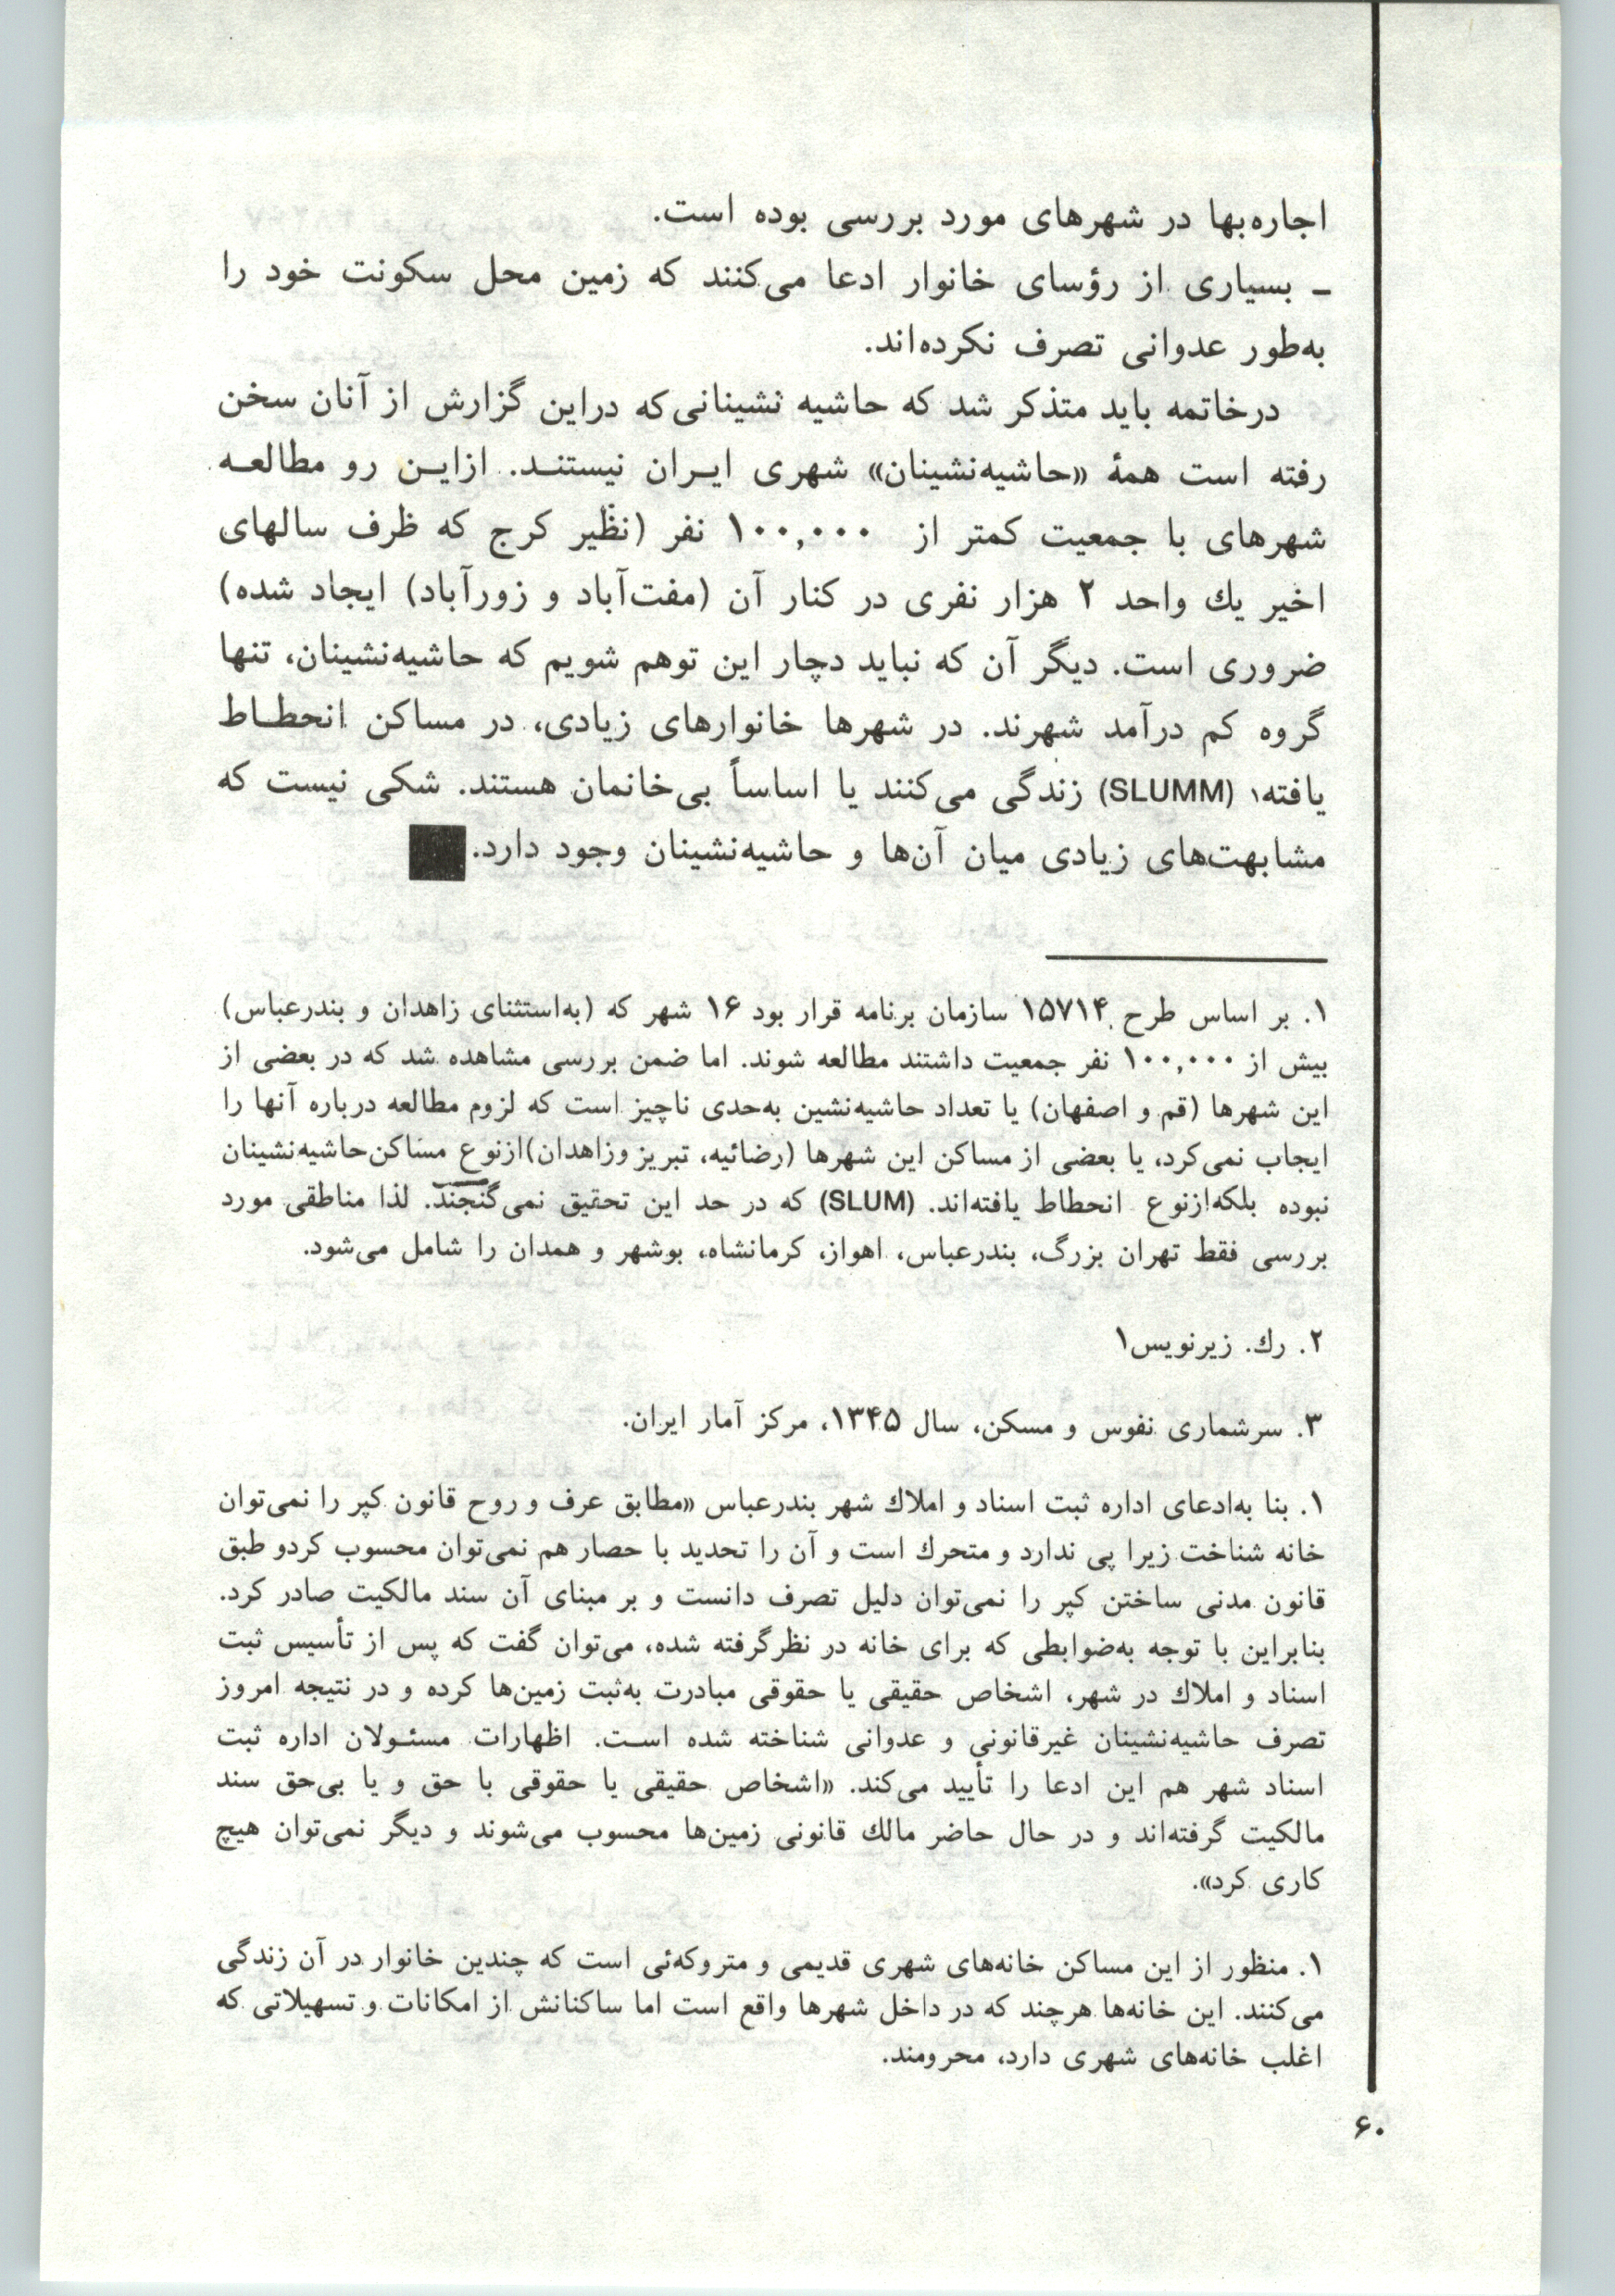 اجاره‌بها در شهرهای مورد بررسی بوده است.
ـ بسیاری از رؤسای خانوار ادعا می‌کنند که زمین محل سکونت خود را
به‌طور عدوانی تصرف نکرده‌اند.
درخاتمه باید متذکر شد که حاشیه نشینانی‌که دراین گزارش از آنان سخن
رفته است همهٔ «حاشیه‌نشینان» شهری ایـران نیستنـد. ازایـن رو مطالعـه
شهرهای با جمعیت کمتر از ۱۰۰,۰۰۰ نفر (نظیر کرج که ظرف سالهای
اخیر یك واحد ۲ هزار نفری در کنار آن (مفت‌آباد و زورآباد) ایجاد شده)
ضروری است. دیگر آن که نباید دچار این توهم شویم که حاشیه‌نشینان، تنها
گروه کم درآمد شهرند. در شهرها خانوارهای زیادی، در مساکن انحطـاط
یافته۱ (SLUMM) زندگی می‌کنند یا اساساً بی‌خانمان هستند. شکی نیست که
مشابهت‌های زیادی میان آن‌ها و حاشیه‌نشینان وجود دارد.
۱. بر اساس طرح ۱۵۷۱۴ سازمان برنامه قرار بود ۱۶ شهر که (به‌استثنای زاهدان و بندرعباس)
بیش از ۱۰۰,۰۰۰ نفر جمعیت داشتند مطالعه شوند. اما ضمن بررسی مشاهده شد که در بعضی از
این شهرها (قم و اصفهان) یا تعداد حاشیه‌نشین به‌حدی ناچیز است که لزوم مطالعه درباره آنها را
ایجاب نمی‌کرد، یا بعضی از مساکن این شهرها (رضائیه، تبریز وزاهدان)ازنوع مساکن‌حاشیه‌نشینان
نبوده بلکه‌ازنوع انحطاط یافته‌اند. (SLUM) که در حد این تحقیق نمی‌گنجند. لذا مناطقی مورد
بررسی فقط تهران بزرگ، بندرعباس، اهواز، کرمانشاه، بوشهر و همدان را شامل می‌شود.
۲. رك. زیرنویس۱
۳. سرشماری نفوس و مسکن، سال ۱۳۴۵، مرکز آمار ایران.
۱. بنا به‌ادعای اداره ثبت اسناد و املاك شهر بندرعباس «مطابق عرف و روح قانون کپر را نمی‌توان
خانه شناخت زیرا پی ندارد و متحرك است و آن را تحدید با حصار هم نمی‌توان محسوب کردو طبق
قانون مدنی ساختن کپر را نمی‌توان دلیل تصرف دانست و بر مبنای آن سند مالکیت صادر کرد.
بنابراین با توجه به‌ضوابطی که برای خانه در نظرگرفته شده، می‌توان گفت که پس از تأسیس ثبت
اسناد و املاك در شهر، اشخاص حقیقی یا حقوقی مبادرت به‌ثبت زمین‌ها کرده و در نتیجه امروز
تصرف حاشیه‌نشینان غیرقانونی و عدوانی شناخته شده اسـت. اظهارات مسئـولان اداره ثبت
اسناد شهر هم این ادعا را تأیید می‌کند. «اشخاص حقیقی یا حقوقی با حق و یا بی‌حق سند
مالکیت گرفته‌اند و در حال حاضر مالك قانونی زمین‌ها محسوب می‌شوند و دیگر نمی‌توان هیچ
کاری کرد».
۱. منظور از این مساکن خانه‌های شهری قدیمی و متروکه‌ئی است که چندین خانوار در آن زندگی
می‌کنند. این خانه‌ها هرچند که در داخل شهرها واقع است اما ساکنانش از امکانات و تسهیلاتی که
اغلب خانه‌های شهری دارد، محرومند.
۶۰